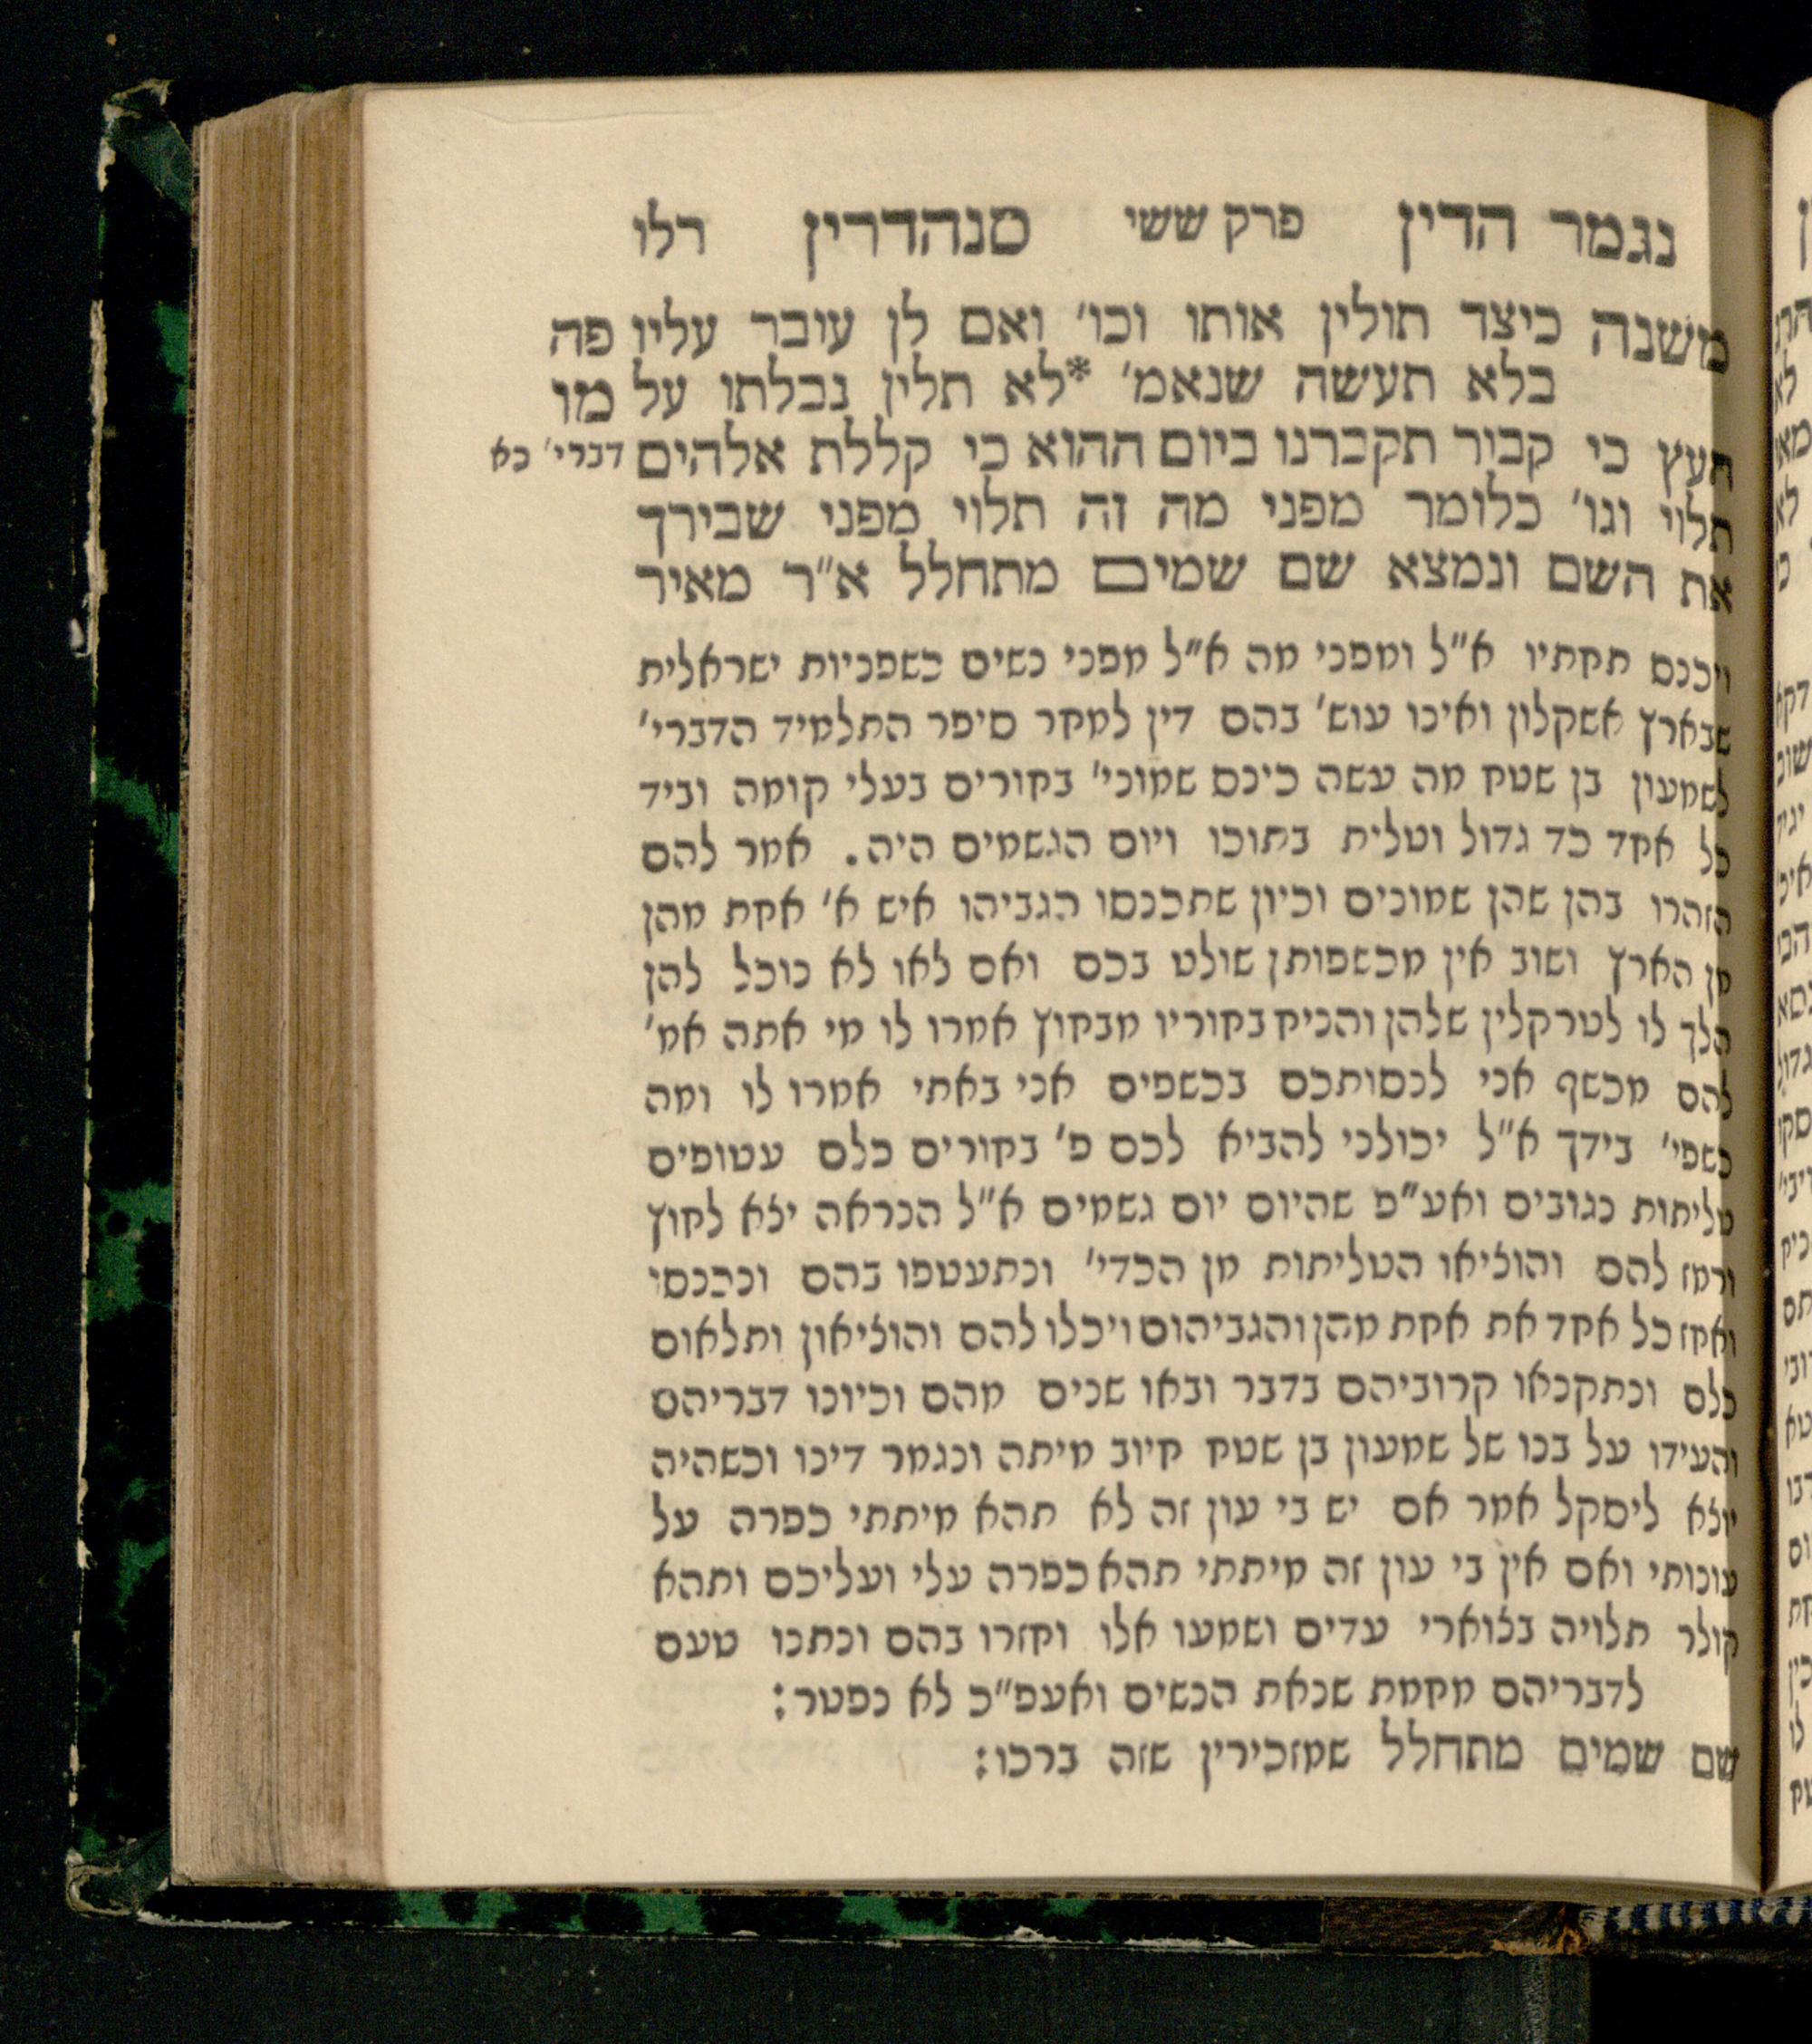 נגמר הדין פרק ששי סנהדרין רלו
משנה כיצד תולין אותו וכו׳ ואם לן עובר עליו פה
בלא תעשה שנאמ׳ *לא תלין נבלתו על מו
העץ כי קבור תקברנו ביום ההוא כי קללת אלהים דברי׳ כא
תלוי וגו׳ כלומר מפני מה זה תלוי מפני שבירך
את השם ונמצא שם שמים מתחלל א״ר מאיר
ויכנס תחתיו א״ל ומפני מה א״ל מפני נשים כשפניות ישראלית
שבארץ אשקלון ואינו עוש׳ בהם דין למחר סיפר התלמיד הדברי׳
לשמעון בן שטח מה עשה כינס שמוני׳ בחורים בעלי קומה וביד
כל אחד כד גדול וטלית בתוכו ויום הגשמים היה. אמר להם
הזהרו בהן שהן שמונים וכיון שתכנסו הגביהו איש א׳ אחת מהן
מן הארץ ושוב אין מכשפותן שולט בכם ואם לאו לא נוכל להן
הלך לו לטרקלין שלהן והניח בחוריו מבחוץ אמרו לו מי אתה אמ׳
להם מכשף אני לנסותכם בכשפים אני באתי אמרו לו ומה
כשפי׳ בידך א״ל יכולני להביא לכם פ׳ בחורים כלם עטופים
טליתות נגובים ואע״פ שהיום יום גשמים א״ל הנראה יצא לחוץ
ורמז להם והוציאו הטליתות מן הכדי׳ ונתעטפו בהם ונכנסו
ואחז כל אחד את אחת מהן והגביהום ויכלו להם והוציאון ותלאום
כלם ונתקנאו קרוביהם בדבר ובאו שנים מהם וכיונו דבריהם
והעידו על בנו של שמעון בן שטח חיוב מיתה ונגמר דינו וכשהיה
יוצא ליסקל אמר אם יש בי עון זה לא תהא מיתתי כפרה על
עונותי ואם אין בי עון זה מיתתי תהא כפרה עלי ועליכם ותהא
קולר תלויה בצוארי עדים ושמעו אלו וחזרו בהם ונתנו טעם
לדבריהם מחמת שנאת הנשים ואעפ״כ לא נפטר:
שם שמים מתחלל שמזכירין שזה ברכו: